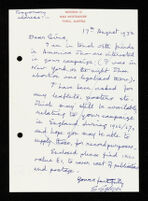 Temporary
address:-
17th August 1972
Dear Sirs,
I am in touch with friends
in America who are interested
in your campaign (I was in
New York on the night their
abortion was legalised there).
I have been asked for
any leaflets, posters etc.
which may still be available
relating to your campaign
in England during 1966/67,
and hope you may be able to
supply these, for record purposes.
Enclosed please find
value £1, to cover cost of publications
and postage.
Yours faithfully